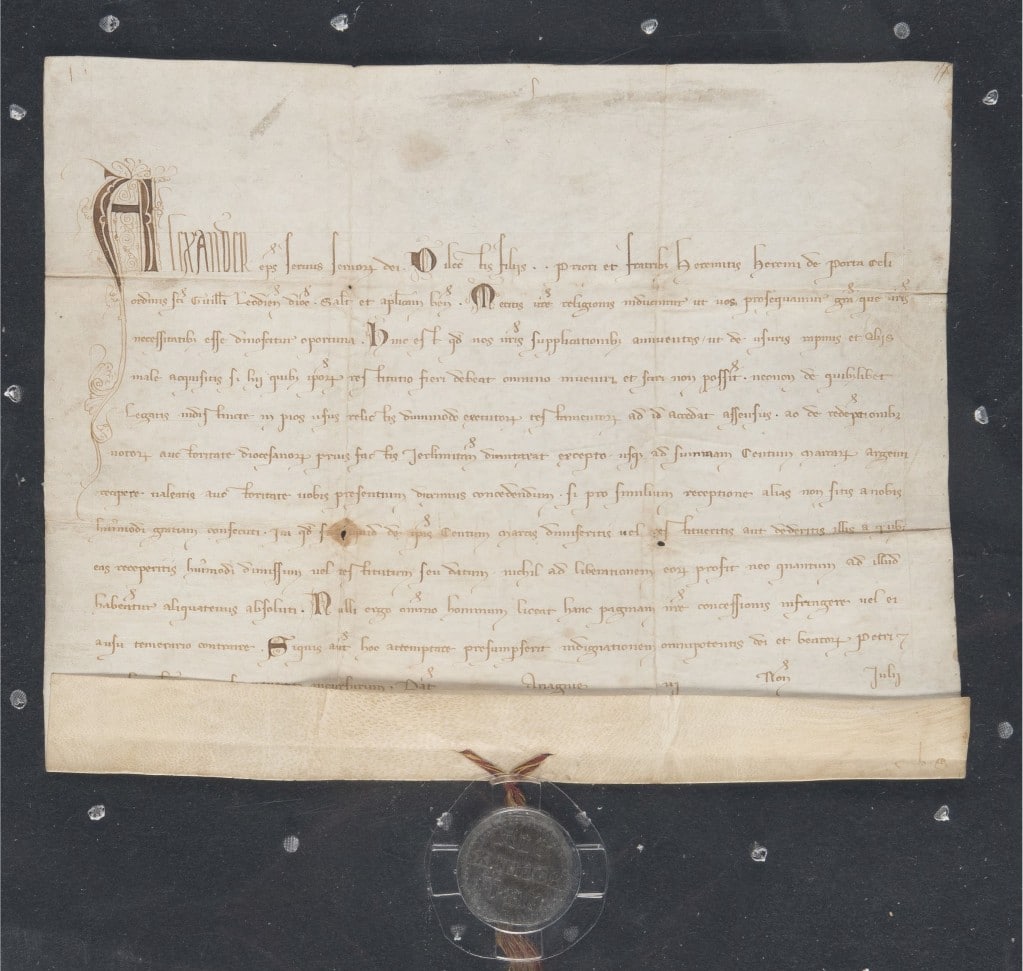 ALEXANDER ep̄s seruus seruoꝝ dei. Dilectis filijs .. Priori et fratribꝫ Heremitis Heremi de Porta Celi
ordinis sc̄i Guill̄i Leodien̄ dioc̄. Salt̄ et apl̄icam ben̄. Meritis ur̄e religionis inducimur ut uos prosequamur gr̄a que ur̄is
necessitatibꝫ esse dinoscitur oportuna. Hinc est qd̄ nos ur̄is supplicationibꝫ annuentes, ut de usuris rapinis et alijs
male acquisitis si hij quibꝫ ip̄oꝝ restitutio fieri debeat omnino inueniri et sciri non possint. necnon de quibuslibet
legatis indistincte in pios usus relictis dummodo executoꝝ testamentoꝝ ad id accedat assensus. ac de redemptionibꝫ
uotoꝝ auctoritate diocesanoꝝ prius factis Ierl̄imitan̄ dumtaxat excepto usqꝫ ad summam Centum marcaꝝ argenti
recipere ualeatis auctoritate uobis presentium duximus concedendum. si pro similium receptione alias non sitis a nobis
huiusmodi gratiam consecuti. Ita qd̄ si de ip̄is Centum marcis dimiseritis uel restitueritis aut dederitis illis a quibꝫ
eas receperitis huiusmodi dimissum uel restitutum seu datum nichil ad liberationem eoꝝ prosit nec quantum ad illud
habeantur aliquatenus absoluti. Nulli ergo om̄ino hominum liceat hanc paginam nr̄e concessionis infringere uel ei
ausu temerario contraire. Siquis aut̄ hoc attemptare presumpserit indignationem omnipotentis dei et beatoꝝ Petri ⁊
incursurum. Dat̄ Anagnie iij Non̄ Julii